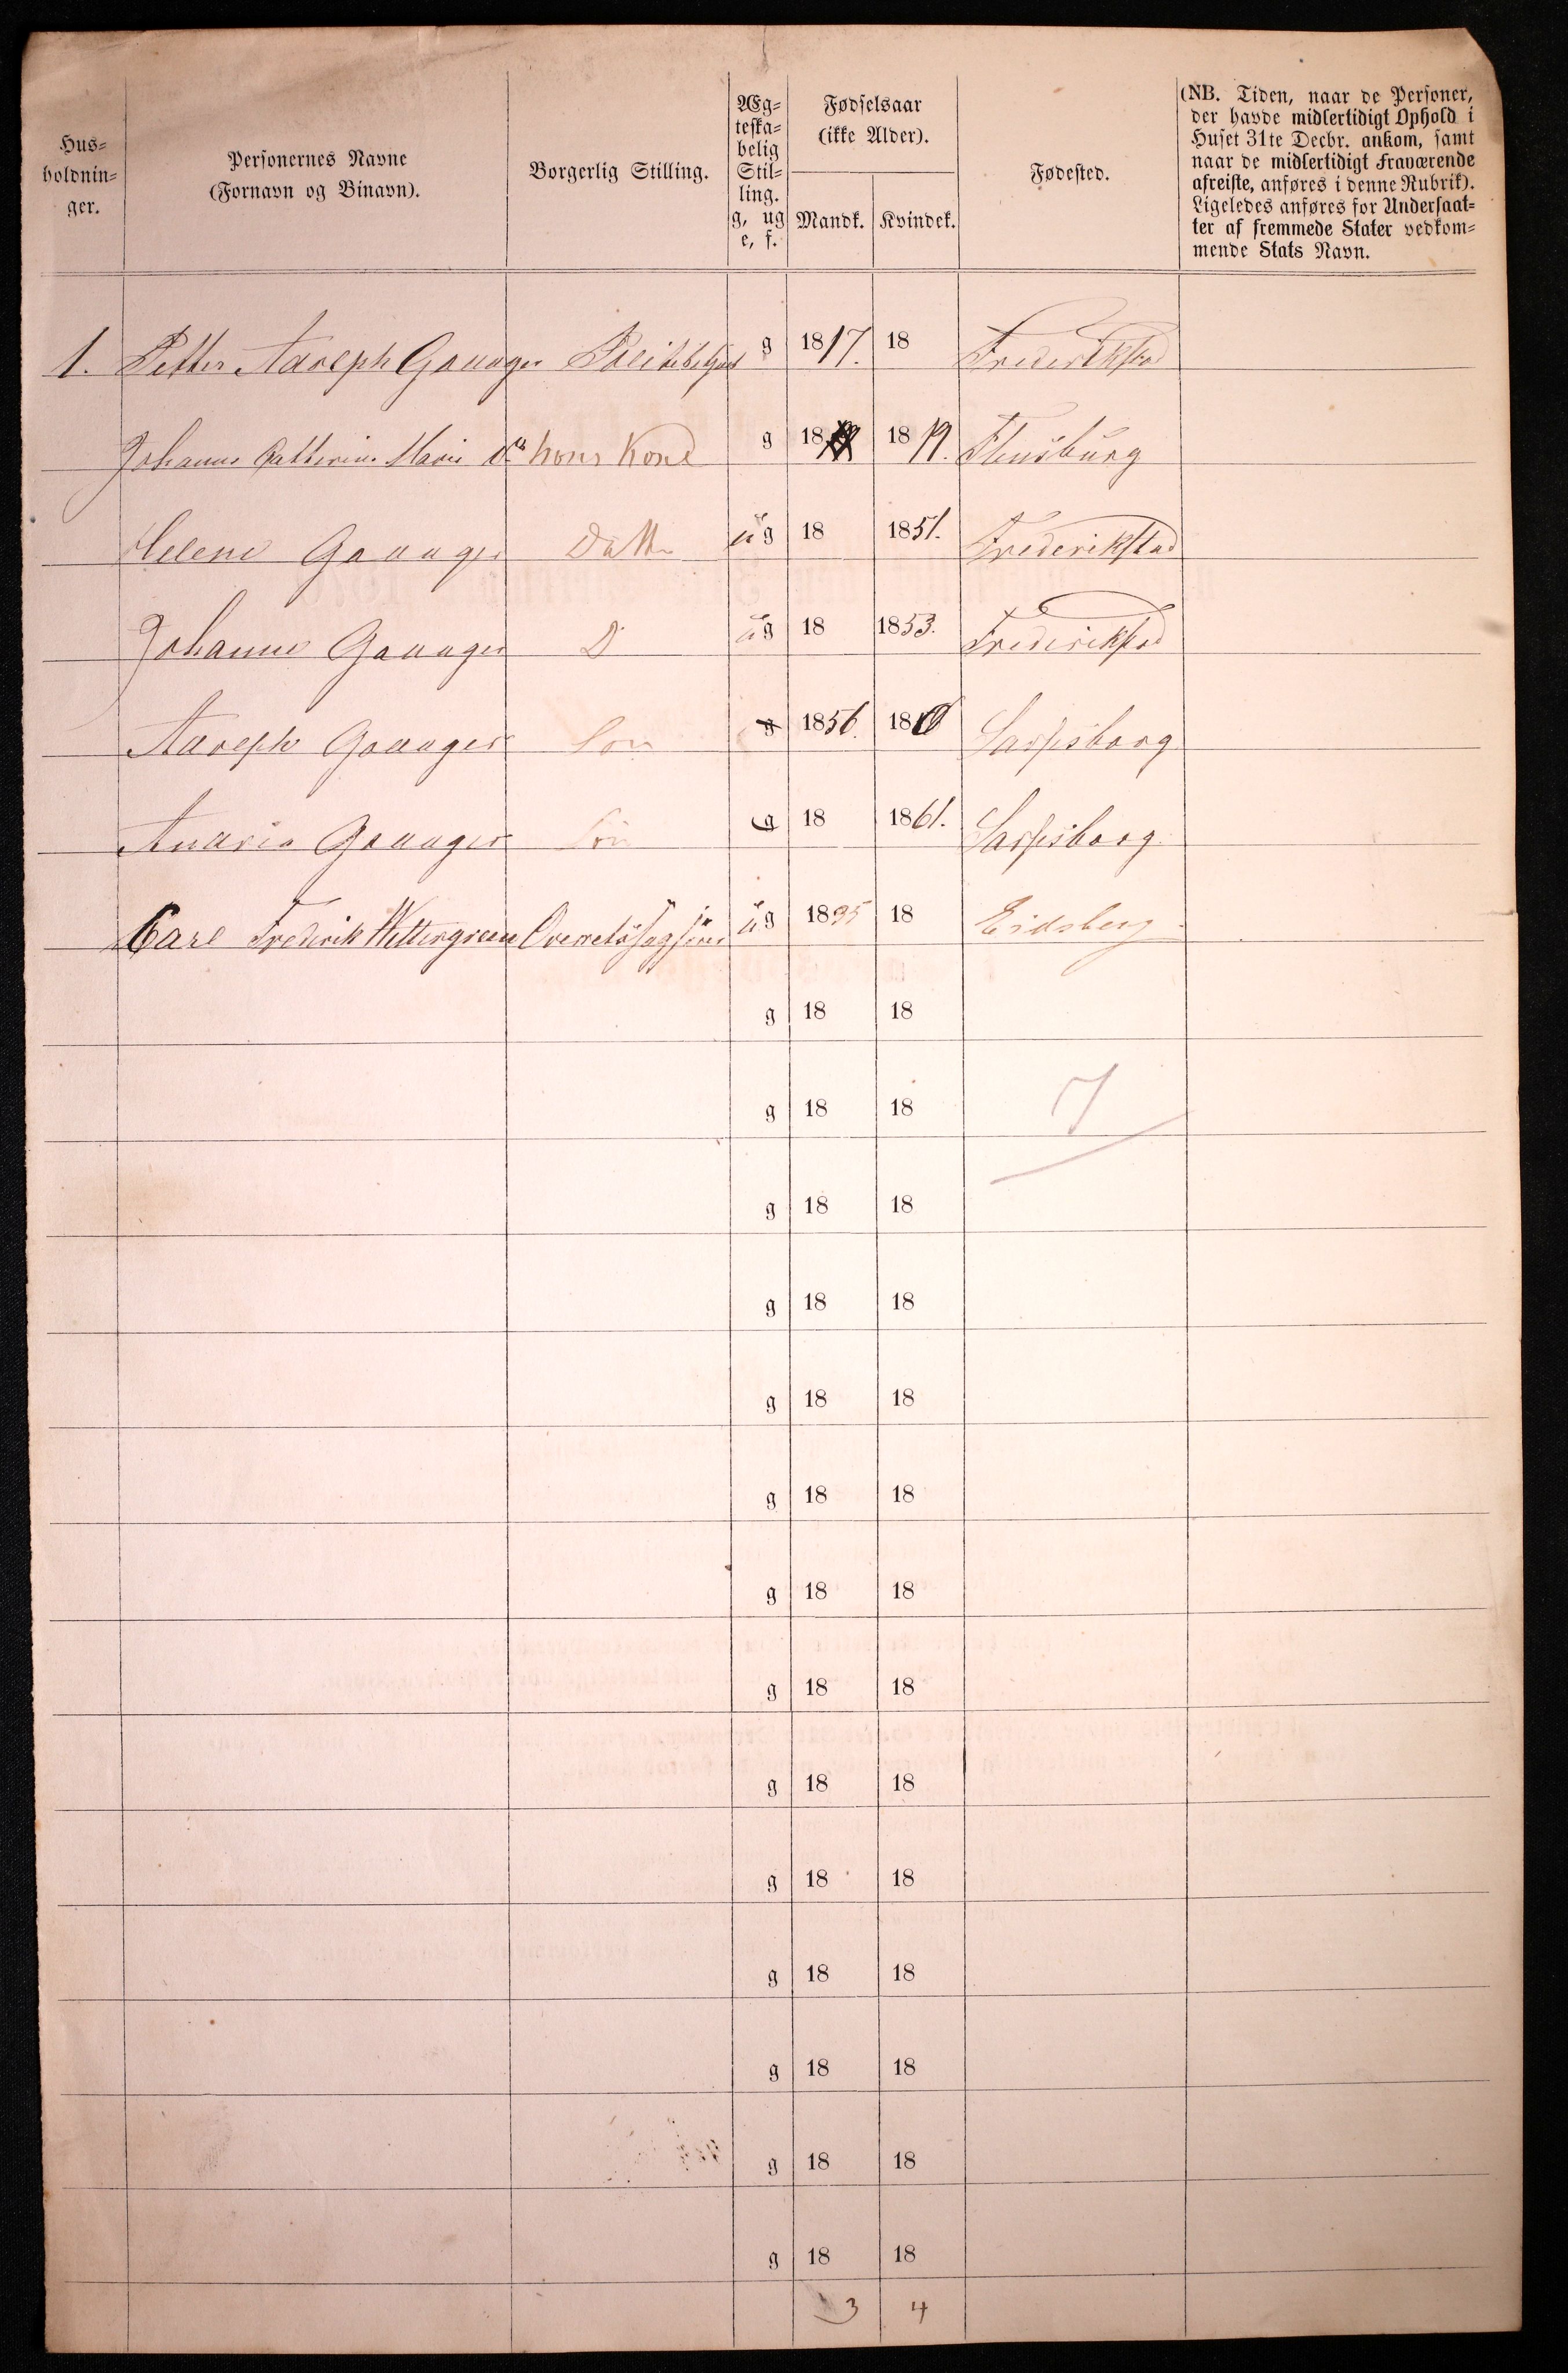 Hus-
holdnin-
ger.
Personernes Navne
(Fornavn og Binavn).
Borgerlig Stilling.
Æg-
teska-
belig
Stil-
ling.
g, ug
e, f.
Fødselsaar
(ikke Alder).
Mandk. Kvindek.
Fødested.
(NB. Tiden, naar de Personer,
der havde midlertidigt Ophold i
Huset 31te Decbr. ankom, samt
naar de midlertidigt Fraværende
afreiste, anføres i denne Rubrik).
Ligeledes anføres for Undersaat-
ter af fremmede Stater vedkom-
mende Stats Navn.
1. Petter g 1817. 18 Frederikstad
Johanne Catharine Marie Do hans Kone g 18 1819. Flensburg
Helene Datter ug 18 1851. Frederikstad
Johanne D ug 18 1853. Frederikstad
Søn g 1856. 18 Sarpsborg
g 18 1861. Sarpsborg
Carl Frederik Wettergreen Overretssagfører ug 1835 18 Eidsberg
g 18 18
g 18 18 7
g 18 18
g 18 18
g 18 18
g 18 18
g 18 18
g 18 18
g 18 18
g 18 18
g 18 18
g 18 18
g 18 18
g 18 18
3 4